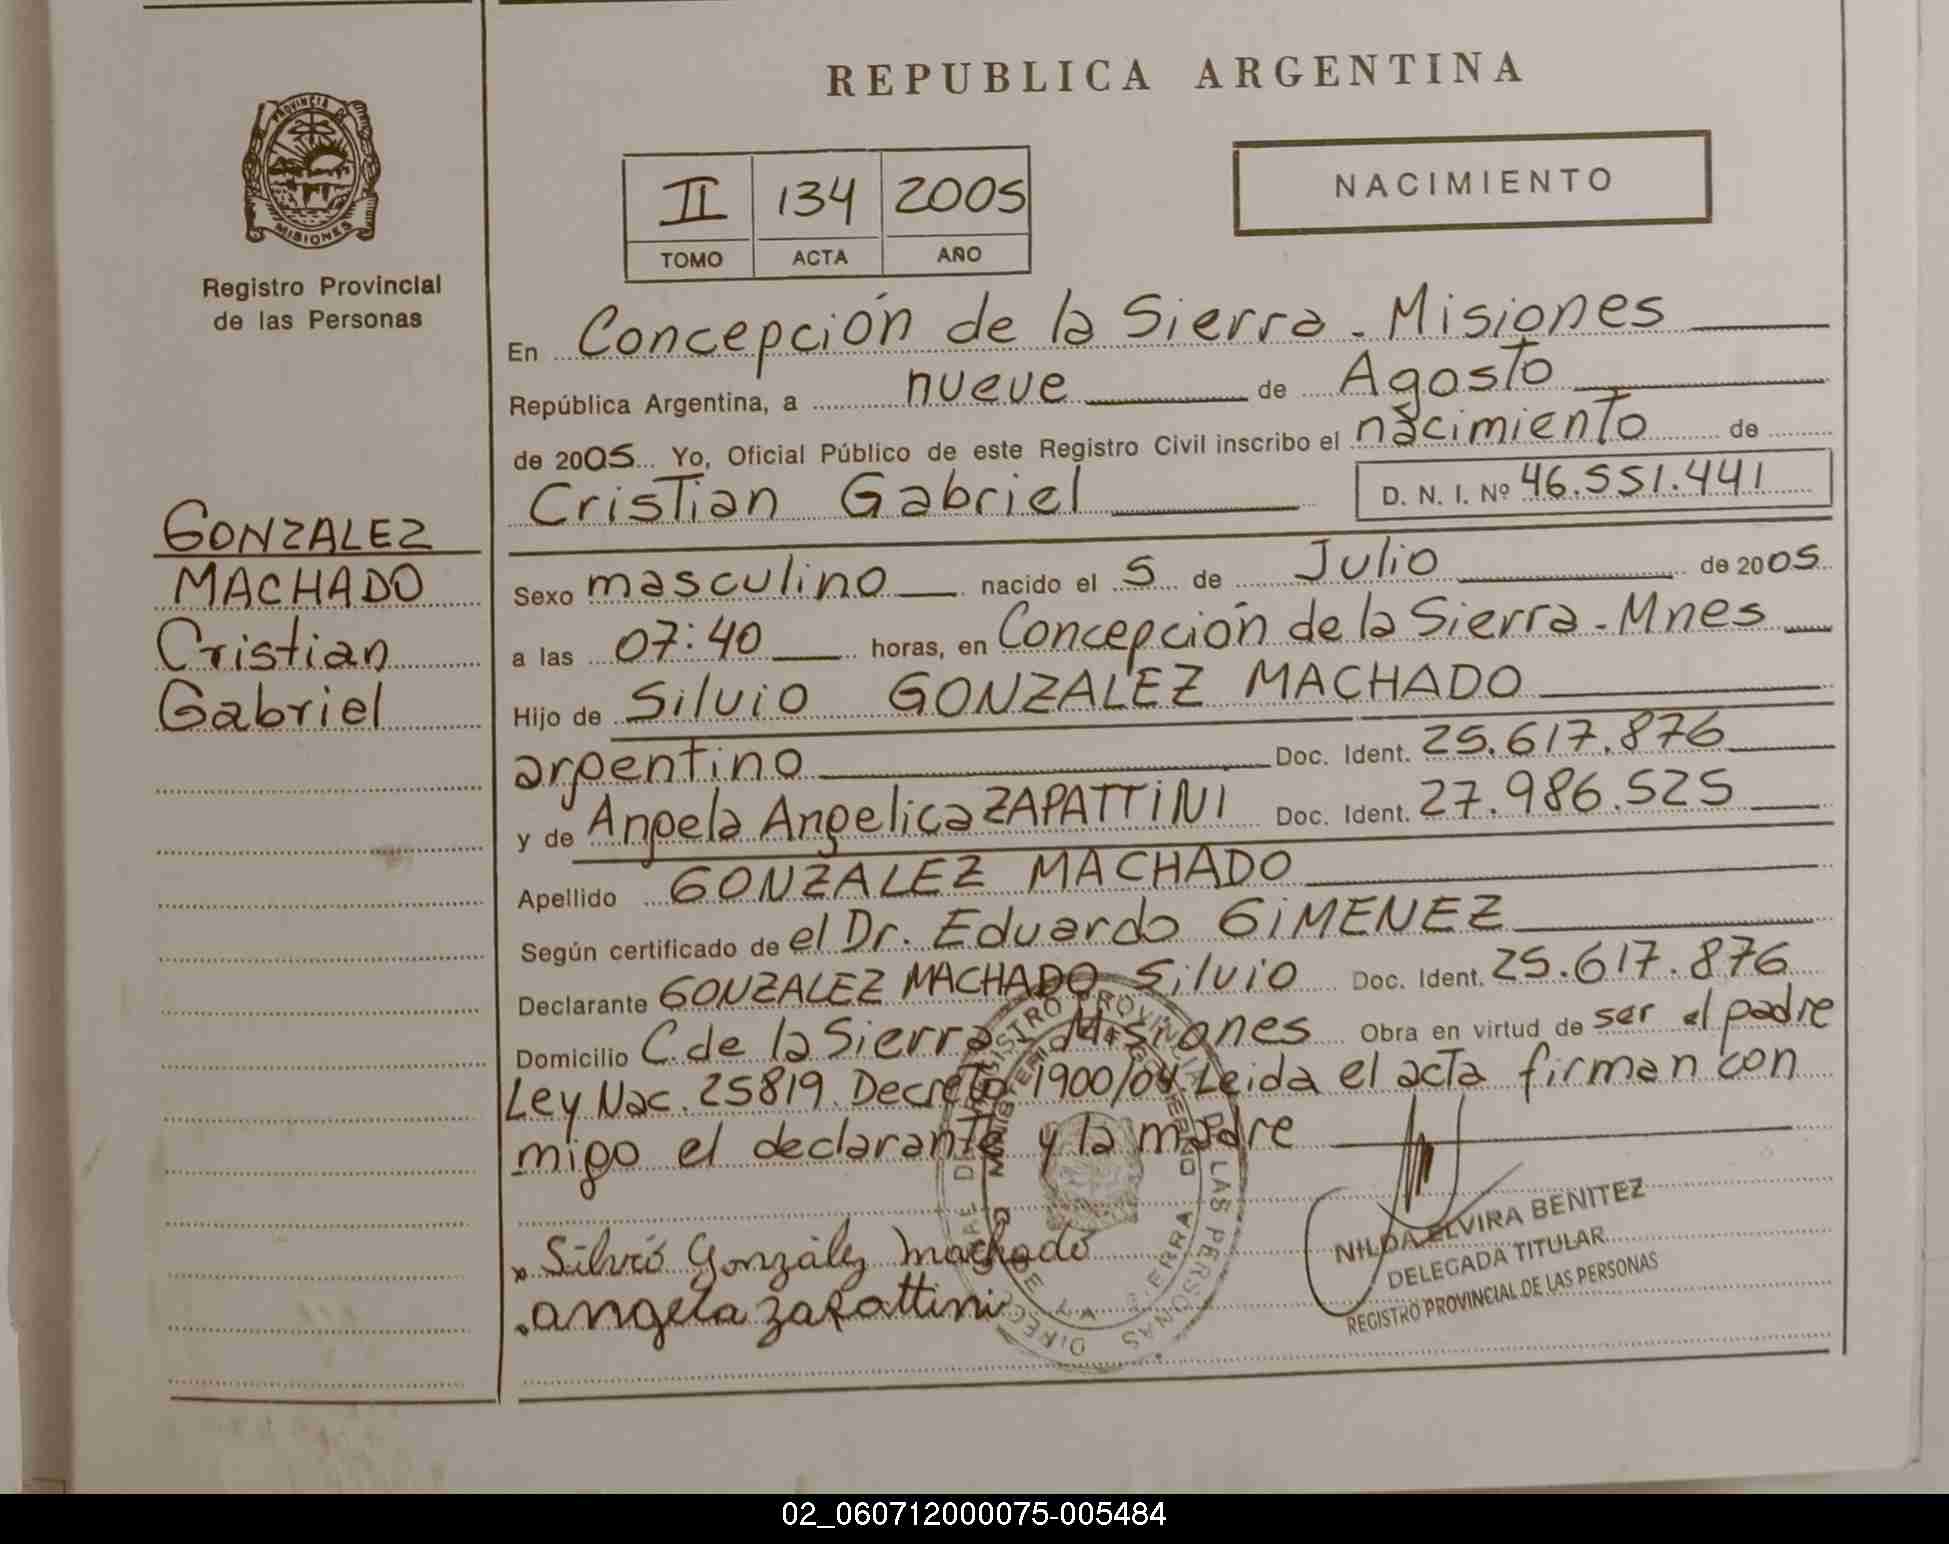 PROVINCIA DE
MISIONES
Registro Provincial
de las Personas
GONZALEZ
MACHADO
Cristian
Gabriel
REPUBLICA ARGENTINA
II 134 2005
TOMO ACTA AÑO
NACIMIENTO
En Concepción de la Sierra - Misiones
República Argentina, a nueve de Agosto
de 2005 Yo, Oficial Público de este Registro Civil inscribo el nacimiento de
Cristian Gabriel D. N. I. Nº 46.551.441
Sexo masculino nacido el 5 de Julio de 2005
a las 07:40 horas, en Concepción de la Sierra - Mnes
Hijo de Silvio GONZALEZ MACHADO
argentino Doc. Ident. 25.617.876
y de Angela Angelica ZAPATTINI Doc. Ident. 27.986.525
Apellido GONZALEZ MACHADO
Según certificado de el Dr. Eduardo GIMENEZ
Declarante GONZALEZ MACHADO Silvio Doc. Ident. 25.617.876
Domicilio C. de la Sierra Misiones Obra en virtud de ser el padre
Ley Nac. 25819 Decreto 1900/04. Leida el acta firman con
migo el declarante y la madre
Silvio González Machado
angela zapattini
NILDA ELVIRA BENITEZ
DELEGADA TITULAR
REGISTRO PROVINCIAL DE LAS PERSONAS
02_060712000075-005484